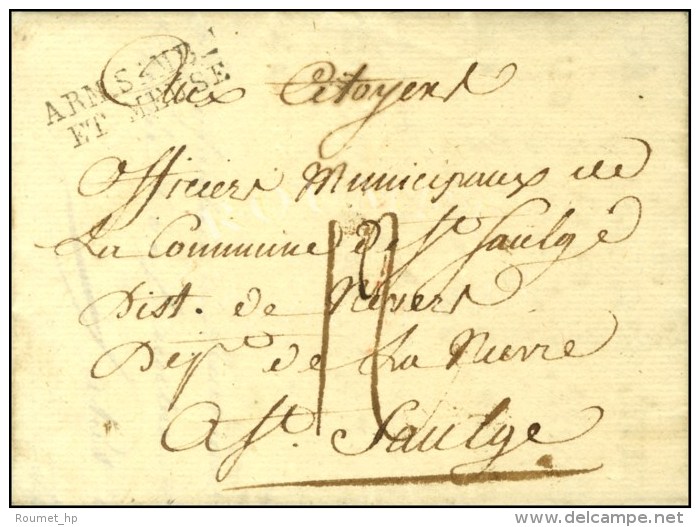 ARM. SAMBRE
ET MEUSE
Aux Citoyens
Officiers Municipaux de
La Commune de St Saulge
Dist. de Nevers
Dep.t de La Nievre
A St. Saulge
Roumet_hp
delcampe.net